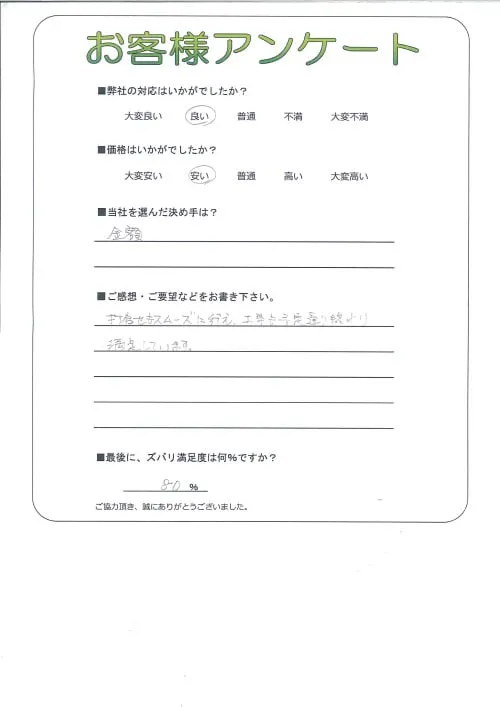 お客様アンケート
■弊社の対応はいかがでしたか？
大変良い 良い 普通 不満 大変不満
■価格はいかがでしたか？
大変安い 安い 普通 高い 大変高い
■当社を選んだ決め手は？
金額
■ご感想・ご要望などをお書き下さい。
打合せもスムーズに行え、工事も予定通り終より
満足しています。
■最後に、ズバリ満足度は何％ですか？
80 ％
ご協力頂き、誠にありがとうございました。